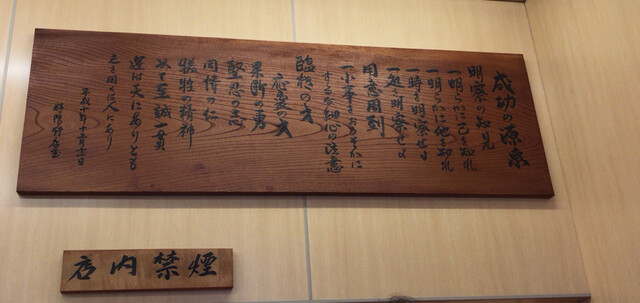 成功の源泉
明察の知見
一明らかに己を知れ
一明らかに他を知れ
一時を明察せよ
一処を明察せよ
用意周到
一小事おろそかに
細心の注意
臨機の才
応変の才
果断の勇
堅忍の志
同情の仁
犠牲の精神
以て至誠一貫
運は天にありとも
之を開くは人にあり
平成
店内禁煙